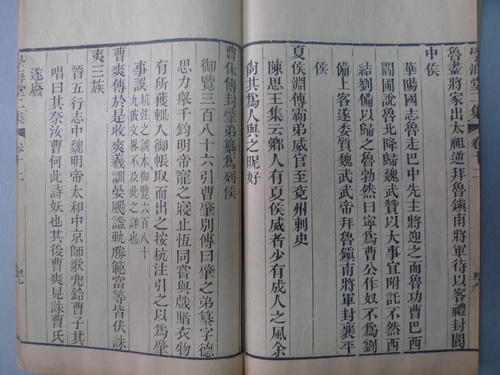 學海堂二集 卷十二
魯盡將家出太祖逆拜魯鎮南將軍待以客禮封閬
中侯
華陽國志魯走巴中先主將迎之而魯功曹巴西
閻圃說魯北降歸魏武贊以大事宜附託不然西
結劉備以歸之魯勃然曰寧為曹公作奴不為劉
備上客遂委質魏武武帝拜魯鎮南將軍封襄平
侯
夏侯淵傳霸弟威官至兗州刺史
陳思王集云鄉人有夏侯威者少有成人之風余
尚其為人與之昵好
曹休傳封肇弟纂為列侯
御覽三百八十六引曹肇別傳曰肇之弟纂字德
思力舉千鈞明帝寵之寢止恆同嘗與戲賭衣物
有所獲輒入御帳取而出之按杭注引之以為肇
事誤杭注之誤本御覽六百八十
九彼文又與不及此之詳也
曹爽傳於是收爽羲訓晏颺謐軌勝範當等皆伏誅
夷三族
晉五行志中魏明帝太和中京師歌兜鈴曹子其
唱曰其奈汝曹何此詩妖也其後曹爽見誅曹氏
遂廢
學海堂二集 卷十二